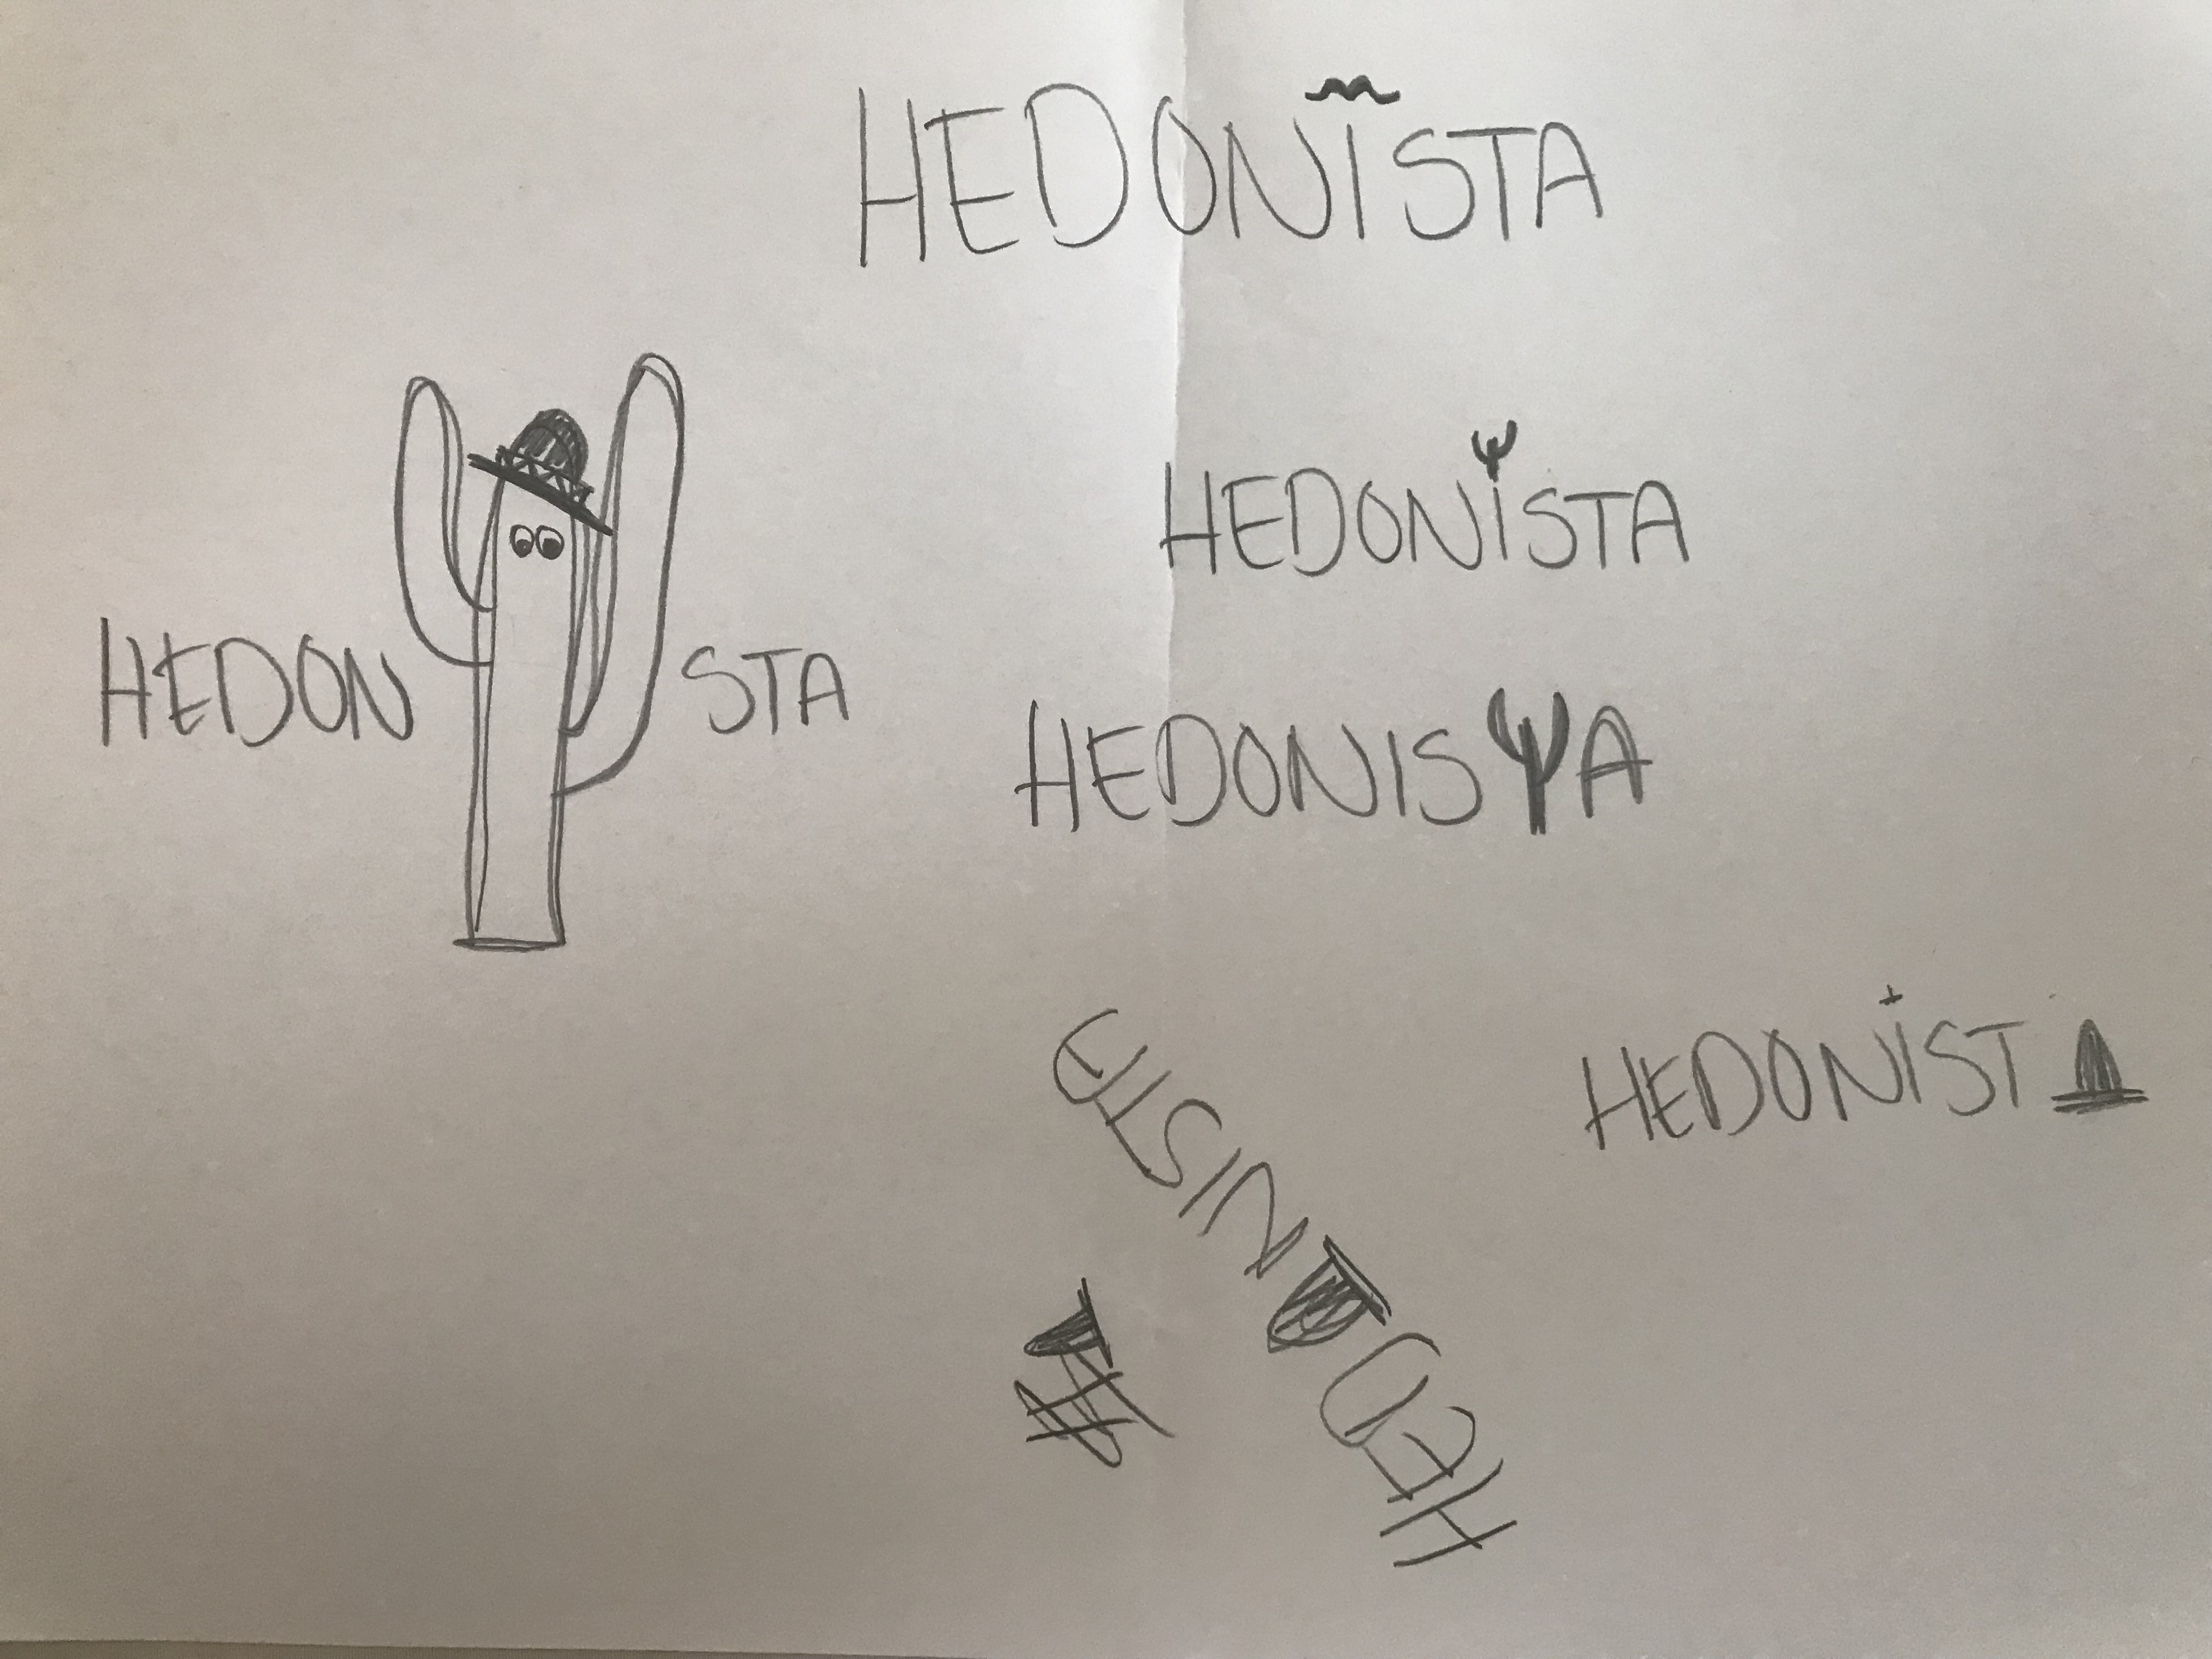 HEDONISTA
HEDONISTA
HEDON STA
HEDONIS A
HEDONIST
HED NISTA